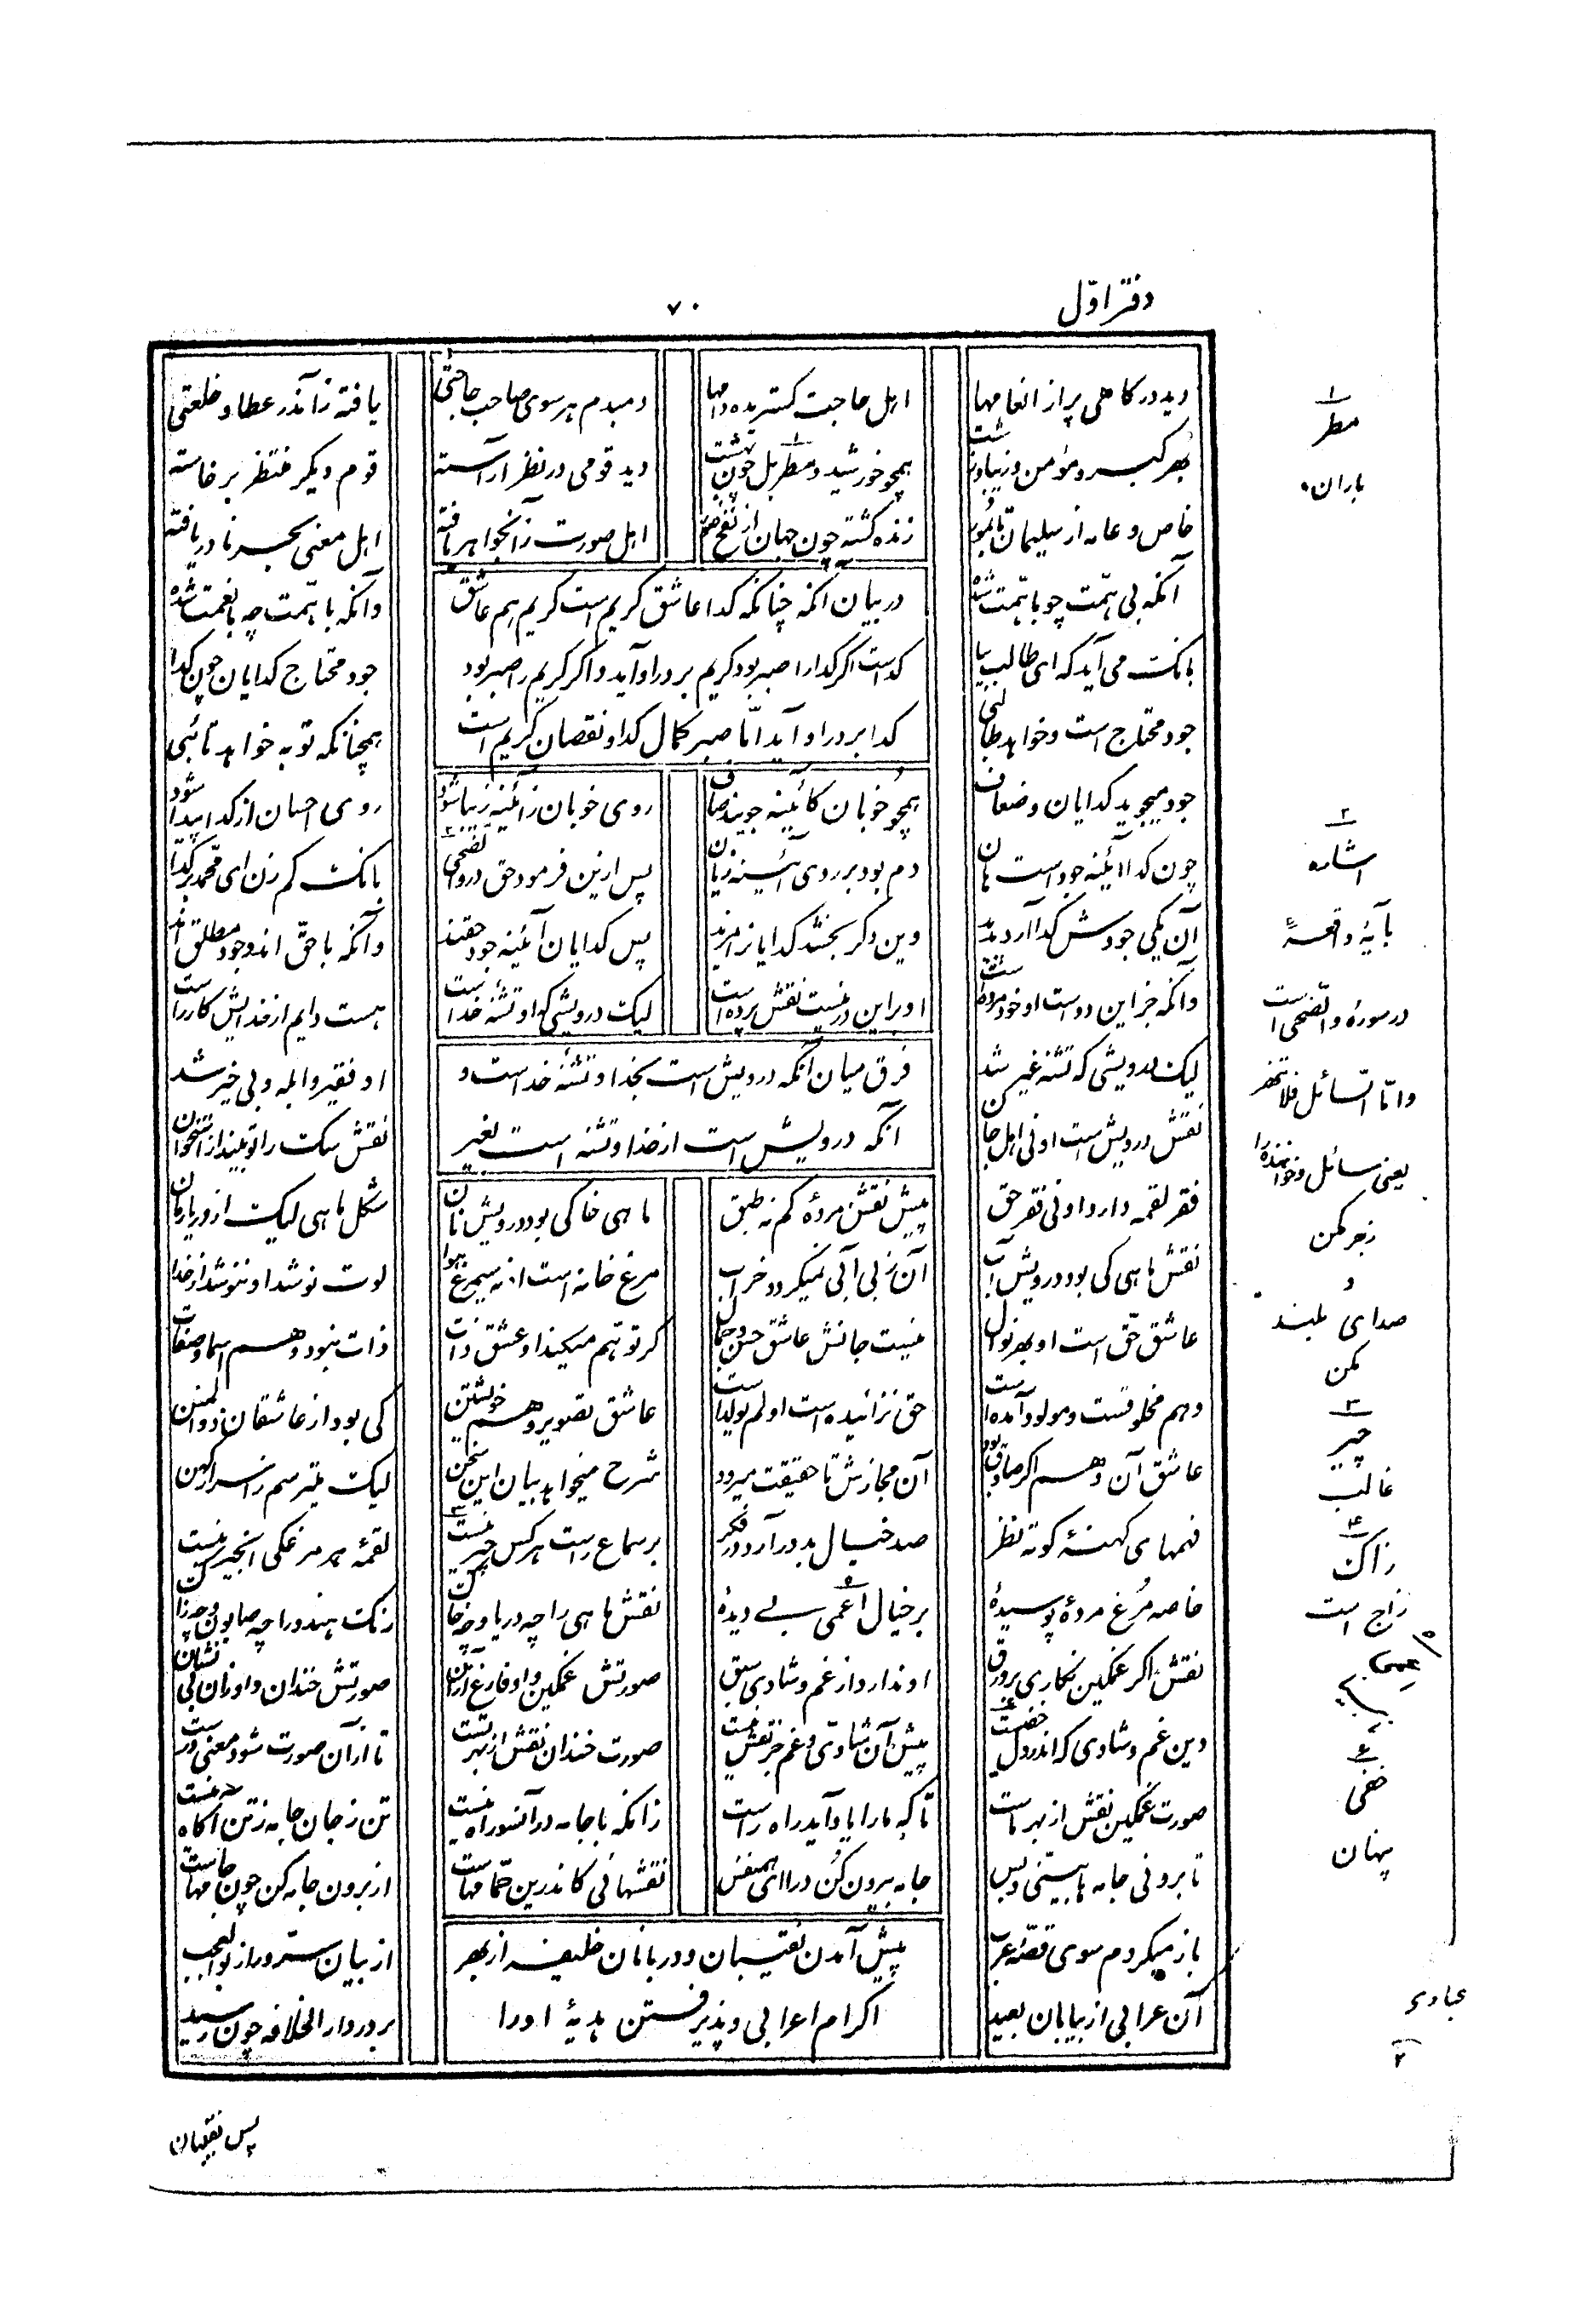 دفتر اوّل
۷۰
دید درگاهی پر از انعامها
اهل حاجت گستریده دامها
دمبدم هر سوی صاحب حاجتی
یافته زآندر عطا و خلعتی
بهر گبر و مؤمن و زیبا و زشت
همچو خورشید و مطر بل چون بهشت
دید قومی در نظر آراسته
قوم دیگر منتظر برخاسته
خاص و عامه از سلیمان تا بمور
زنده گشته چون جهان از نفخ صور
اهل صورت زآن جواهر بافته
اهل معنی بحر معنی یافته
آنکه بی همّت چو با همّت شده
وآنکه با همّت چه با نعمت شده
در بیان آنکه چنانکه گدا عاشق کریم است کریم هم عاشق
گداست اگر گدا را صبر بود کریم بر در او آید و اگر کریم را صبر بود
گدا بر در او آید امّا صبر کمال گدا و نقصان کریم است
بانگ می آید که ای طالب بیا
جود محتاج گدایان چون گدا
جود محتاج است و خواهد طالبی
همچنانکه توبه خواهد تائبی
جود میجوید گدایان و ضعاف
همچو خوبان کآئینه جویند صاف
روی خوبان زآئینه زیبا شود
روی احسان از گدا پیدا شود
چون گدا آئینه جود است هان
دم بود بر روی آئینه زیان
پس ازین فرمود حق در والضّحی
بانگ کم زن ای محمّد بر گدا
آن یکی جودش گدا آرد پدید
وین دگر بخشد گدایانرا مزید
پس گدایان آئینه جود حقند
وآنکه با حقّ اند وجود مطلق اند
وآنکه جز این دوست او خود مرده است
او براین در نیست نقش پرده است
لیک درویشی که او تشنه خداست
هست دایم از خدایش کار راست
فرق میان آنکه درویش است بخدا و تشنهٔ خداست و
آنکه درویش است از خدا و تشنه است بغیر
لیک درویشی که تشنه غیر شد
او فقیر و ابله و بی خیر شد
نقش درویش است او نی اهل جان
نقش سگ را تو مینداز استخوان
فقر لقمه دارد او نی فقر حق
پیش نقش مردهٔ کم نه طبق
ماهی خاکی بود درویش نان
شکل ماهی لیک از دریا رمان
نقش ماهی کی بود درویش آب
آن ز بی آبی نمیگردد خراب
مرغ خانه است او نه سیمرغ هوا
لوت نوشد او ننوشد از خدا
عاشق حقّ است او بهر نوال
نیست جانش عاشق حسن و جمال
گر توهّم میکند او عشق ذات
ذات نبود وهم اسما و صفات
وهم مخلوقست و مولود آمده است
حق نزائیده است او لم یولد است
عاشق تصویر و وهم خویشتن
کی بود از عاشقان ذوالمنن
عاشق آن وهم اگر صادق بود
آن مجازش تا حقیقت میرود
شرح میخواهد بیان این سخن
لیک میترسم ز اسرار کهن
فهمهای کهنهٔ کوته نظر
صد خیال بد در آرد در فکر
بر سماع راست هر کس چیر نیست
لقمهٔ هر مرغکی انجیر نیست
خاصه مرغ مردهٔ پوسیدهٔ
بر خیال اعمی بی دیدهٔ
نقش ماهی را چه دریا و چه خاک
رنگ هندو را چه صابون و چه زاک
نقش اگر غمگین نگاری بر ورق
او ندارد از غم و شادی سبق
صورتش غمگین و او فارغ از آن
صورتش خندان و او زان بی نشان
وین غم و شادی که اندر دل خفیست
پیش آن شادی و غم جز نقش نیست
صورت خندان نقش از بهر تست
تا از آن صورت شود معنی درست
صورت غمگین نقش از بهر ماست
تا که ما را یاد آید راه راست
زانکه با جامه در آنسو راه نیست
تن ز جان جامه ز تن آگاه نیست
تا برونی جامه ها بینی و بس
جامه بیرون کن درا ای همنفس
نقشهائی کاندرین حمّامهاست
از برون جامه کن چون جامهاست
پیش آمدن نقیبان و دربانان خلیفه از بهر
اکرام اعرابی و پذیرفتن هدیهٔ او را
باز میگردم سوی قصّهٔ عرب
از بیان سر و راز بوالعجب
آن عرابی از بیابان بعید
بر در دارالخلافه چون رسید
۱
مطر
باران
۲
اشاره
بآیهٔ واقعهٔ
در سورهٔ والضّحی است
وامّا السّائل فلا تنهر
یعنی سائل و خواهنده را
زجر مکن
و
صدای بلند
مکن
۳
چیر
غالب
۴
زاک
زاج است
۵
عمی
۶
خفی
پنهان
۲
پس نقیبان